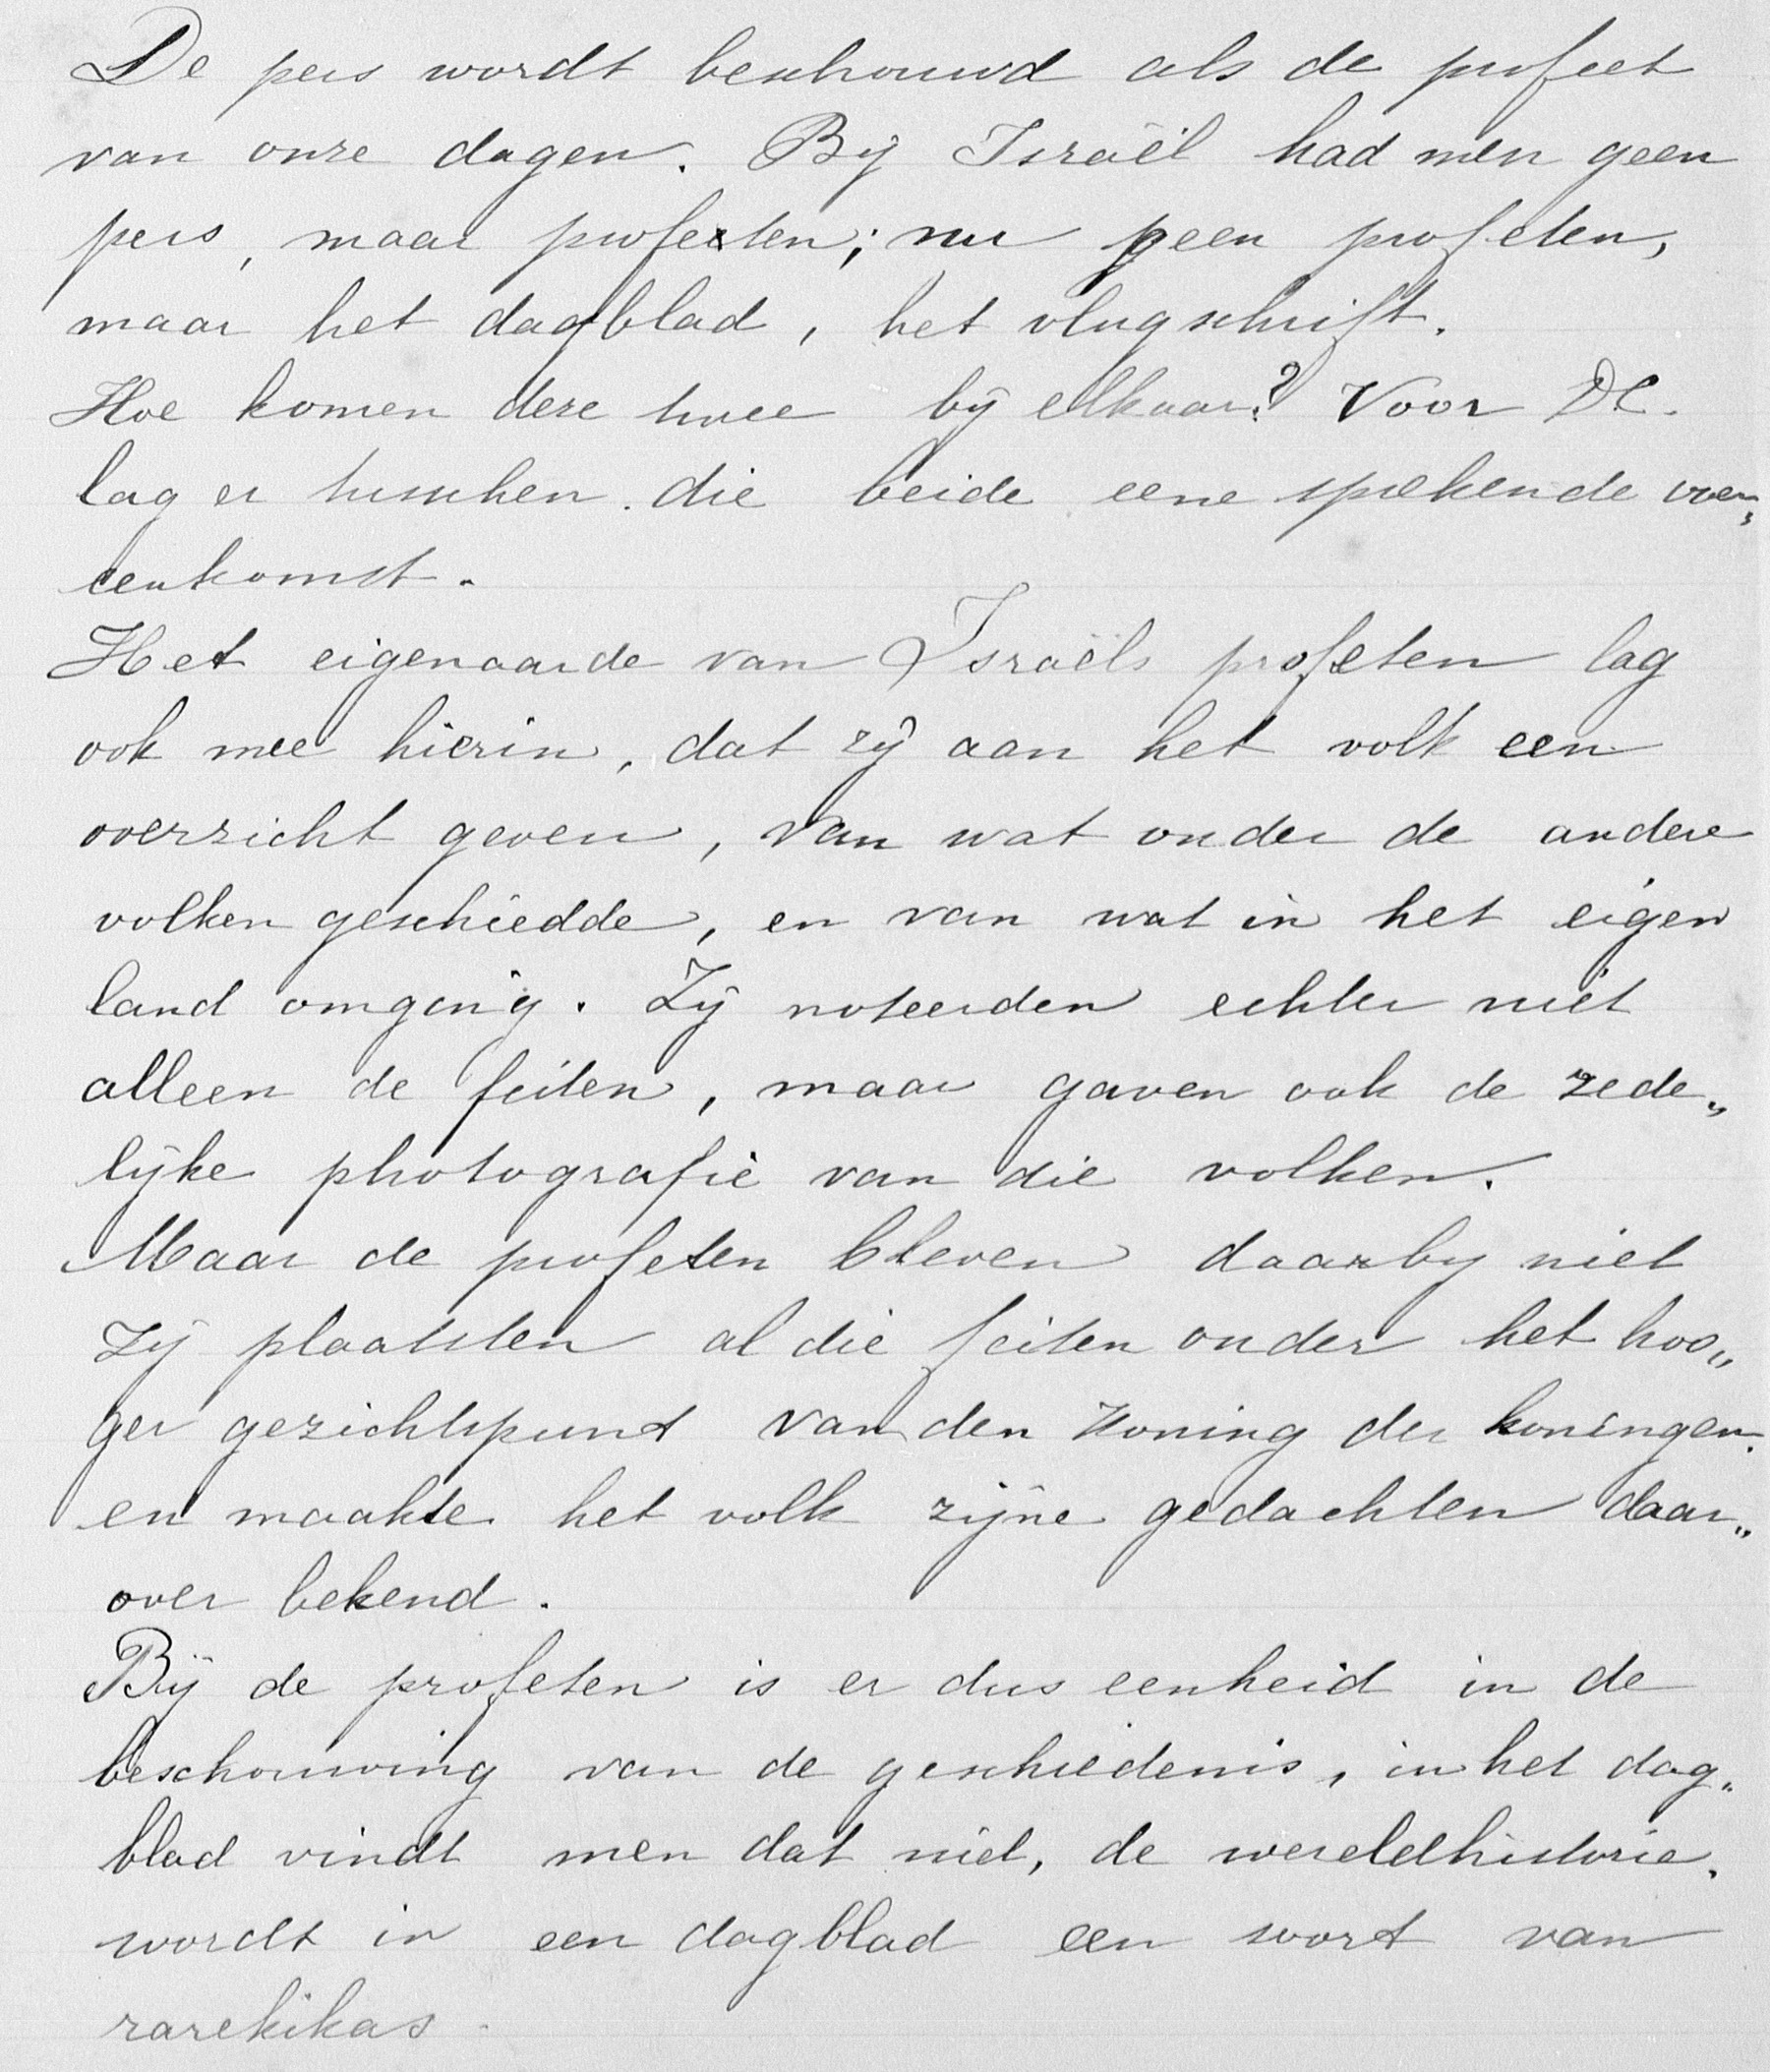 De pers wordt beschouwd als de profeet
van onze dagen. Bij Israël had men geen
pers, maar profeten; nu geen profeten,
maar het dagblad, het vlugschrift.
Hoe komen deze twee bij elkaar? Voor
lag er tusschen die beide eene sprekende over„
eenkomst.
Het eigenaarde van Israëls profeten lag
ook mee hierin, dat zij aan het volk een
overzicht geven, van wat onder de andere
volken geschiedde, en van wat in het eigen
land omging. Zij noteerden echter niet
alleen de feiten, maar gaven ook de zede„
lijke photografie van die volken.
Maar de profeten bleven daarby niet
zij plaatsten al die feiten onder het hoo„
ger gezichtspunt van den Koning der koningen.
en maakte het volk zijne gedachten daar„
over bekend.
Bij de profeten is er dus eenheid in de
beschouwing van de geschiedenis, in het dag„
blad vindt men dat niet, de wereldhistorie.
wordt in een dagblad een soort van
rarekikas.